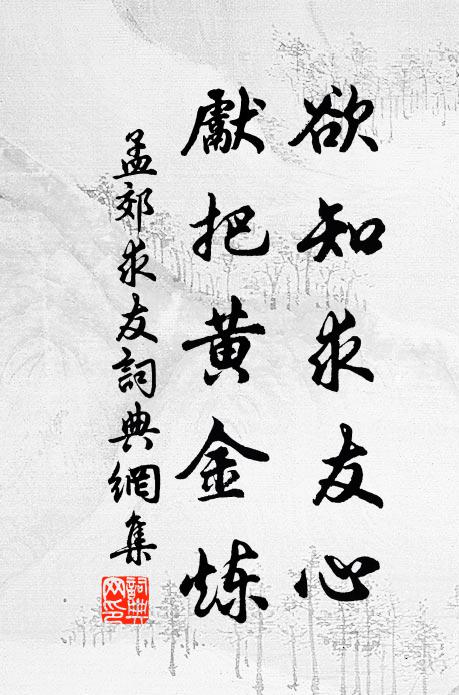 欲知求友心
獻把黃金炼
孟郊求友詞典網集
詞典网印